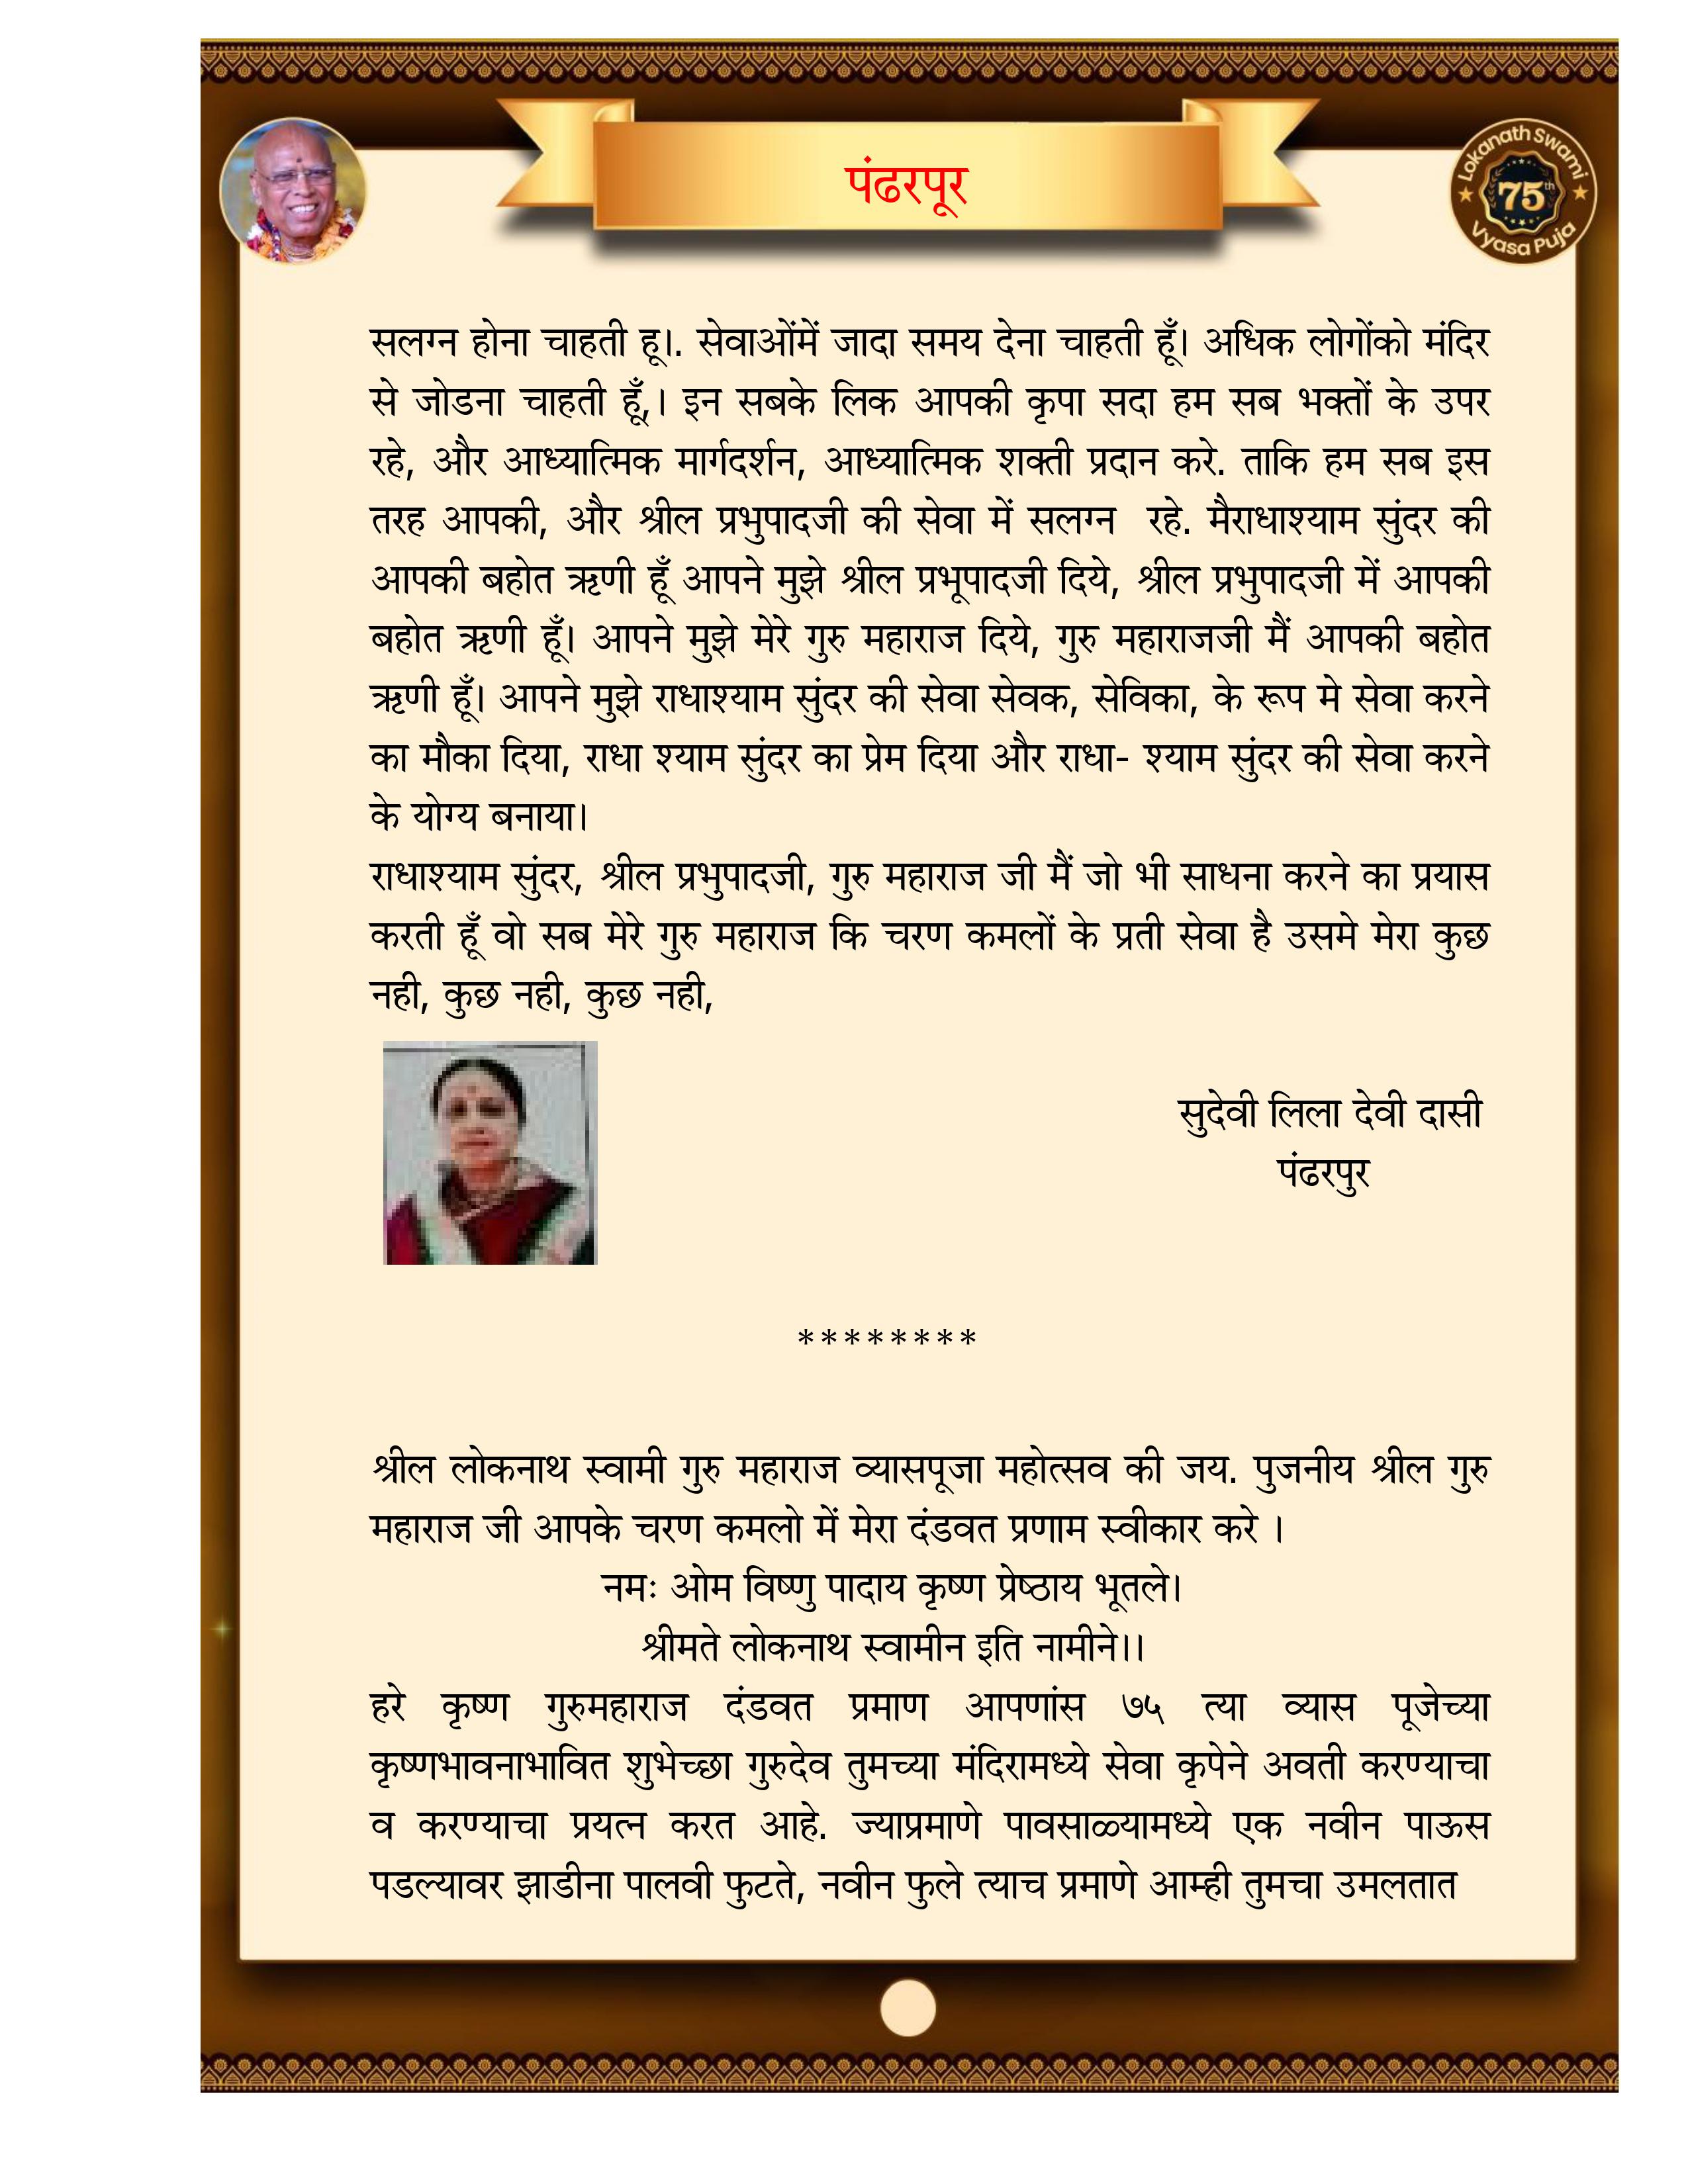 पंढरपूर
Lokanath Swami
75th
Vyasa Puja
सलग्न होना चाहती हू।. सेवाओंमें जादा समय देना चाहती हूँ। अधिक लोगोंको मंदिर
से जोडना चाहती हूँ,। इन सबके लिक आपकी कृपा सदा हम सब भक्तों के उपर
रहे, और आध्यात्मिक मार्गदर्शन, आध्यात्मिक शक्ती प्रदान करे. ताकि हम सब इस
तरह आपकी, और श्रील प्रभुपादजी की सेवा में सलग्न रहे. मैराधाश्याम सुंदर की
आपकी बहोत ऋणी हूँ आपने मुझे श्रील प्रभूपादजी दिये, श्रील प्रभुपादजी में आपकी
बहोत ऋणी हूँ। आपने मुझे मेरे गुरु महाराज दिये, गुरु महाराजजी मैं आपकी बहोत
ऋणी हूँ। आपने मुझे राधाश्याम सुंदर की सेवा सेवक, सेविका, के रूप मे सेवा करने
का मौका दिया, राधा श्याम सुंदर का प्रेम दिया और राधा- श्याम सुंदर की सेवा करने
के योग्य बनाया।
राधाश्याम सुंदर, श्रील प्रभुपादजी, गुरु महाराज जी मैं जो भी साधना करने का प्रयास
करती हूँ वो सब मेरे गुरु महाराज कि चरण कमलों के प्रती सेवा है उसमे मेरा कुछ
नही, कुछ नही, कुछ नही,
सुदेवी लिला देवी दासी
पंढरपुर
********
श्रील लोकनाथ स्वामी गुरु महाराज व्यासपूजा महोत्सव की जय. पुजनीय श्रील गुरु
महाराज जी आपके चरण कमलो में मेरा दंडवत प्रणाम स्वीकार करे ।
नमः ओम विष्णु पादाय कृष्ण प्रेष्ठाय भूतले।
श्रीमते लोकनाथ स्वामीन इति नामीने।।
हरे कृष्ण गुरुमहाराज दंडवत प्रमाण आपणांस ७५ त्या व्यास पूजेच्या
कृष्णभावनाभावित शुभेच्छा गुरुदेव तुमच्या मंदिरामध्ये सेवा कृपेने अवती करण्याचा
व करण्याचा प्रयत्न करत आहे. ज्याप्रमाणे पावसाळ्यामध्ये एक नवीन पाऊस
पडल्यावर झाडीना पालवी फुटते, नवीन फुले त्याच प्रमाणे आम्ही तुमचा उमलतात